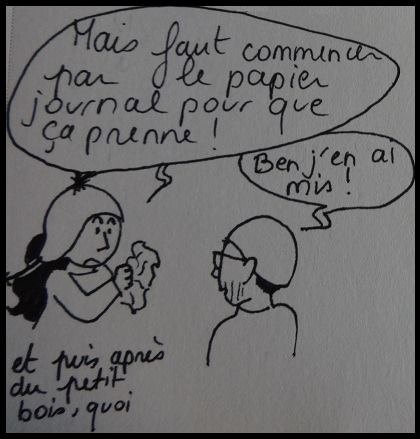 Mais faut commencer
par le papier
journal pour que
ça prenne !
Ben j'en ai
mis !
et puis après
du petit
bois, quoi